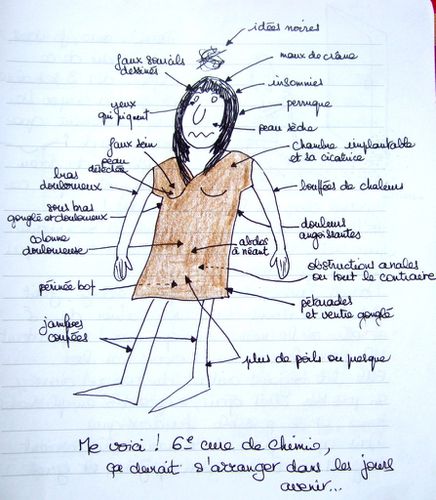 idées noires
faux sourcils
dessinés
maux de crâne
insomnies
yeux
qui piquent
perruque
peau sèche
faux sein
peau
desséchée
chambre implantable
et sa cicatrice
bras
douloureux
bouffées de chaleur
sous bras
gonflé et douloureux
douleurs
angoissantes
colonne
douloureuse
abdos
à néant
obstructions anales
ou tout le contraire
périnée bof
pétarades
et ventre gonflé
jambes
coupées
plus de poils ou presque
Me voici ! 6e cure de chimio,
ça devrait s'arranger dans les jours
avenir...